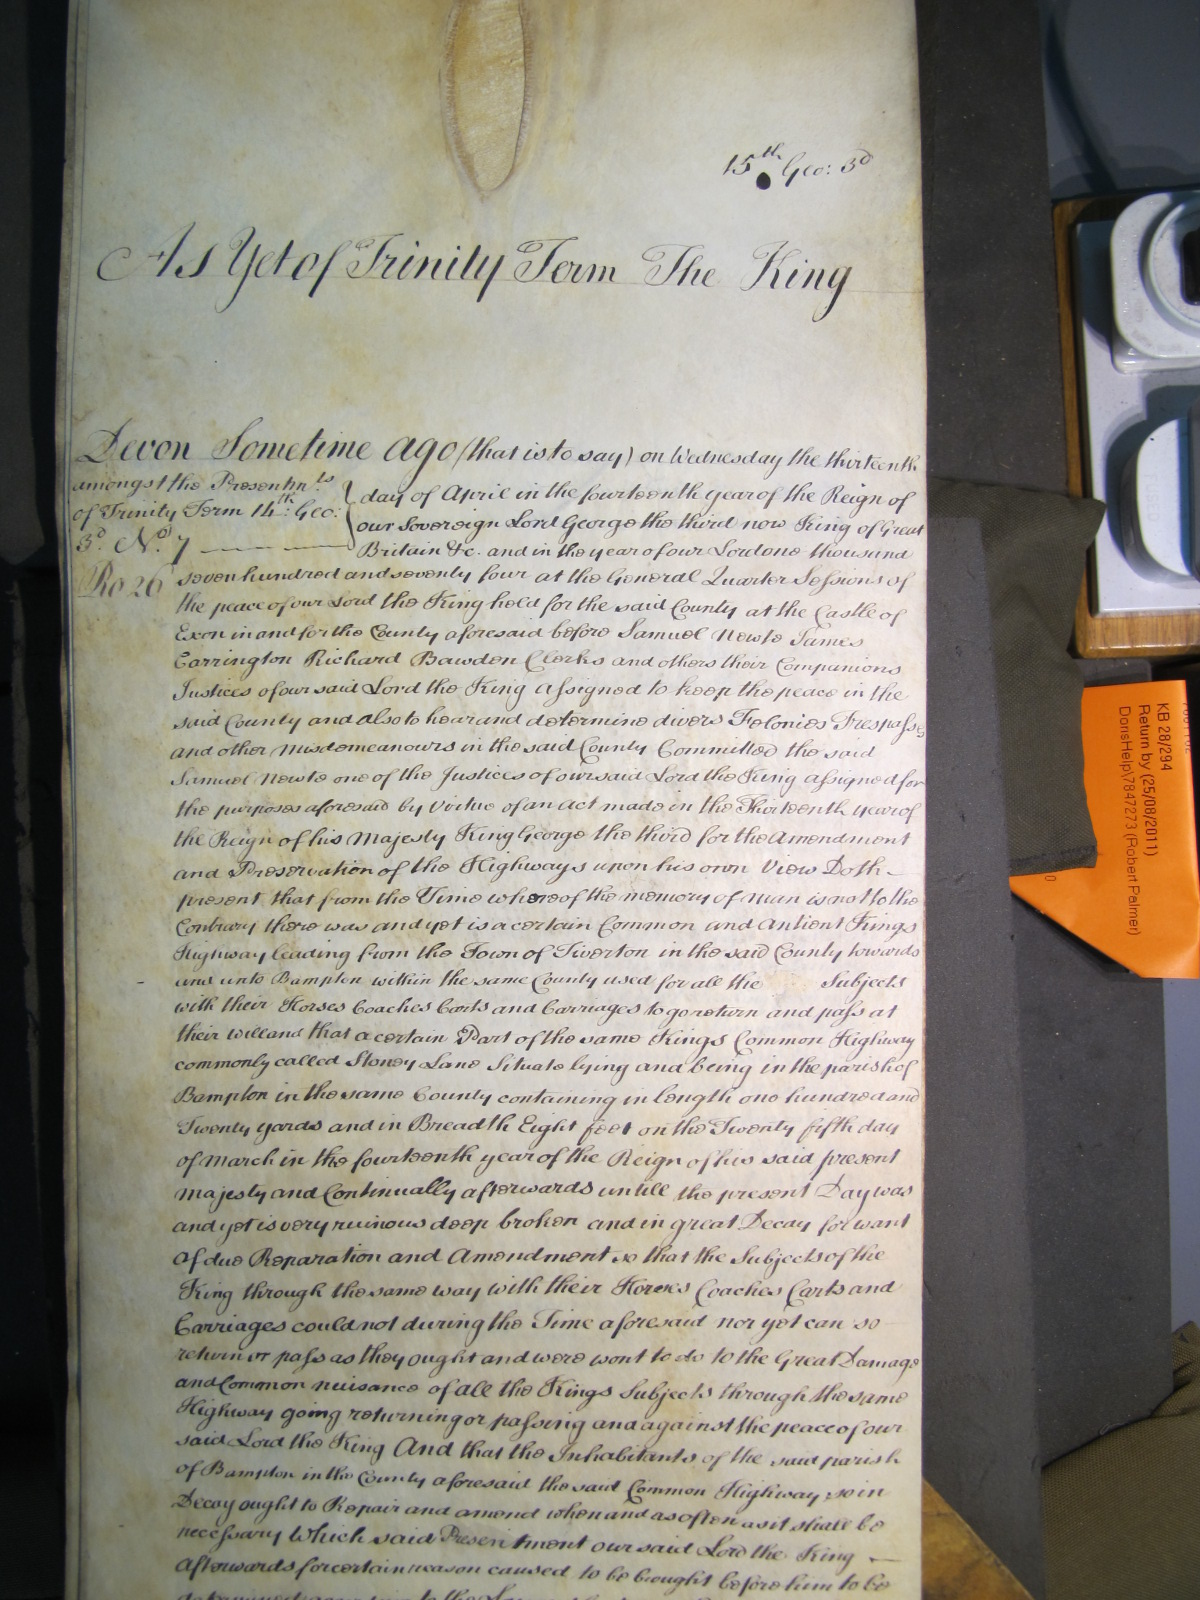 15th Geo: 3d
As Yet of Trinity Term The King
Devon Sometime ago (that is to say) on Wednesday the thirteenth
amongst the Presentmts
of Trinity Term 14th: Geo:
3d No. 7
Ro 26
day of April in the fourteenth year of the Reign of
our Sovereign Lord George the third now King of Great
Britain &c. and in the year of our Lord one thousand
seven hundred and seventy four at the General Quarter Sessions of
the peace of our Lord the King held for the said County at the Castle of
Exon in and for the County aforesaid before Samuel Newte James
Carrington Richard Bawden Clerks and others their Companions
Justices of our said Lord the King assigned to keep the peace in the
said County and also to hear and determine divers Felonies Trespasses
and other misdemeanours in the said County Committed the said
Samuel Newte one of the Justices of our said Lord the King assigned for
the purposes aforesaid by virtue of an Act made in the Thirteenth year of
the Reign of his Majesty King George the third for the Amendment
and Preservation of the Highways upon his own View Doth
present that from the Time whereof the memory of man is not to the
Contrary there was and yet is a certain Common and Antient Kings
Highway leading from the Town of Tiverton in the said County towards
and unto Bampton within the same County used for all the Subjects
with their Horses Coaches Carts and Carriages to go return and pass at
their will and that a certain Part of the same Kings Common Highway
commonly called Stoney Lane Situate lying and being in the parish of
Bampton in the same County containing in length one hundred and
Twenty yards and in Breadth Eight feet on the Twenty fifth day
of March in the fourteenth year of the Reign of his said present
Majesty and Continually afterwards untill the present Day was
and yet is very ruinous deep broken and in great Decay for want
of due Reparation and Amendment so that the Subjects of the
King through the same way with their Horses Coaches Carts and
Carriages could not during the Time aforesaid nor yet can so
return or pass as they ought and were wont to do to the Great Damage
and Common nuisance of all the Kings Subjects through the same
Highway going returning or passing and against the peace of our
said Lord the King And that the Inhabitants of the said parish
of Bampton in the County aforesaid the said Common Highway so in
Decay ought to Repair and amend when and as often as it shall be
necessary Which said Presentment our said Lord the King
afterwards for certain reason caused to be brought before him to be
KB 28/294
Return by (25/08/2011)
DorisHelp\7847273 (Robert Palmer)